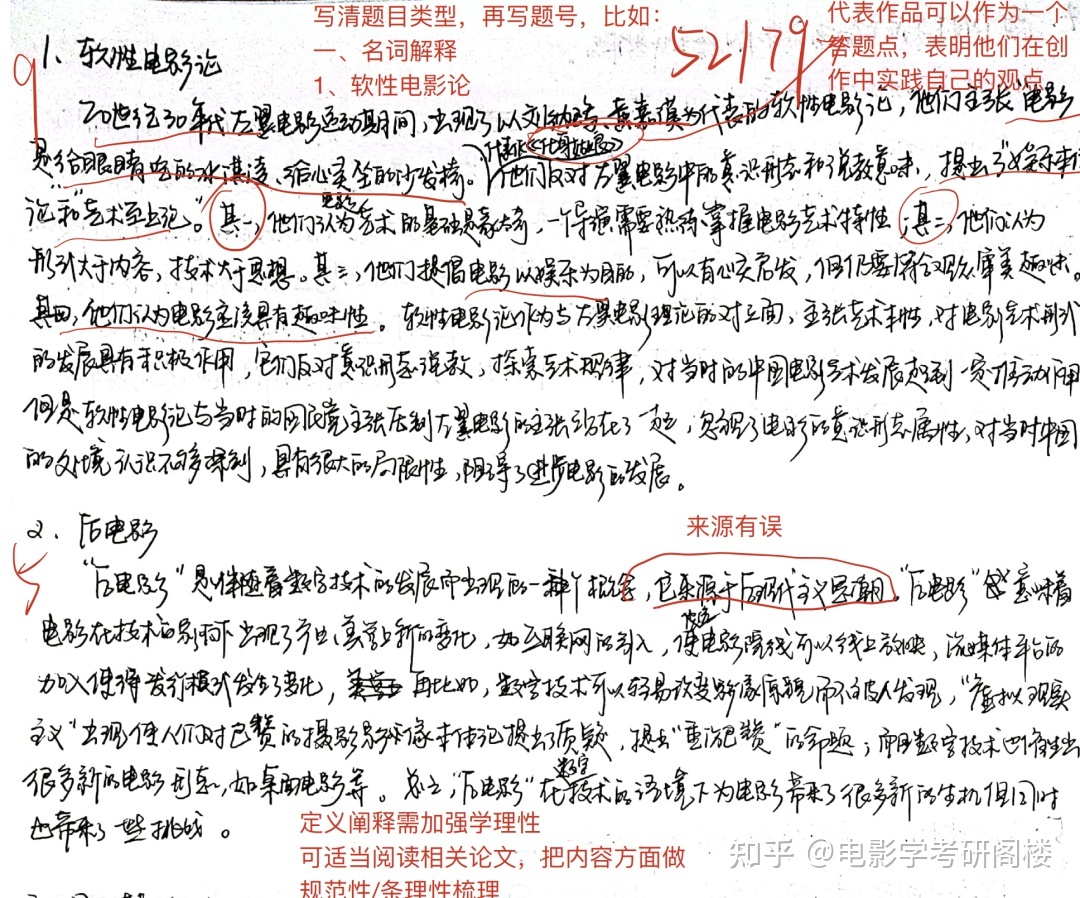 写清题目类型，再写题号，比如：
一、名词解释
1、软性电影论
52179
代表作品可以作为一个
答题点，表明他们在创
作中实践自己的观点
9
1、软性电影论
20世纪30年代左翼电影运动期间，出现了以刘呐鸥、黄嘉谟为代表的软性电影论，他们主张"电影
是给眼睛吃的冰淇淋、给心灵坐的沙发椅。"他们反对左翼电影中的意识形态和说教意味，提出了"娱乐本位
论"和"艺术至上论"。其一，他们认为电影艺术的基础是，一个导演需要熟练掌握电影艺术特性；其二，他们认为
形式大于内容，技术大于思想。其三，他们提倡电影以娱乐为目的，可以有心灵启发，但仍要符合观众审美趣味。
其四，他们认为电影应该具有趣味性。软性电影论作为与左翼电影理论的对立面，主张艺术本性，对电影艺术形式
的发展具有积极作用，它们反对意识形态说教，探索艺术规律，对当时的中国电影艺术发展起到一定推动作用
但是软性电影论与当时的国民党主张压制左翼电影的主张站在了一起，忽视了电影的意识形态属性，对当时中国
的处境认识不够深刻，具有很大的局限性，阻碍了进步电影的发展。
来源有误
2、后电影
5
"后电影"是伴随着数字技术的发展而出现的一种概念，它来源于后现代主义思潮。"后电影"意味着
电影在技术的影响下出现了产业、美学上新的变化，如互联网的引入，使电影院线可以线上放映，流媒体平台的
加入使得发行模式发生了变化，再比如，数字技术可以轻易改变影像原貌而不被人发现，"虚拟现实
主义"出现使人们对巴赞的摄影影像本体论提出了质疑，提出"重识巴赞"的命题；而且数字技术也催生出
很多新的电影形态，如桌面电影等。总之，"后电影"在数字技术的语境下为电影带来了很多新的生机但同时
也带来了一些挑战。
定义阐释需加强学理性
可适当阅读相关论文，把内容方面做
规范性/条理性梳理
知乎 @电影学考研阁楼